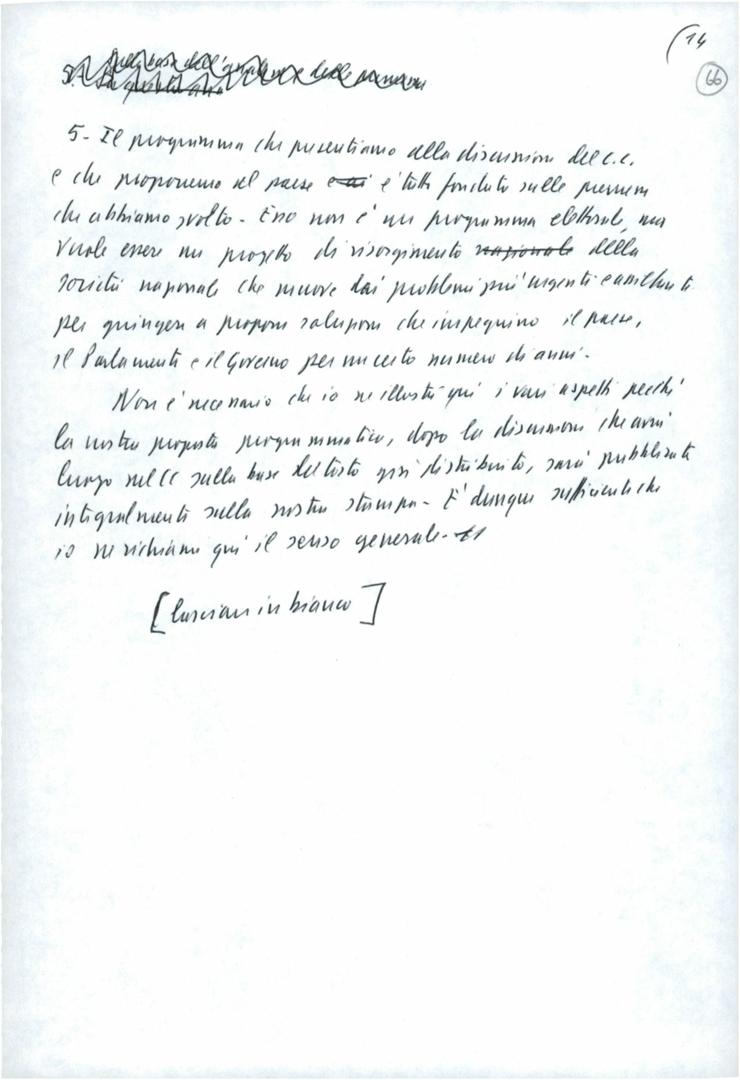 (14
66
5. Sulla base dell'analisi e delle
5 - Il programma che presentiamo alla discussione del C.C.
e che proponiamo al paese è tutto fondato sulle premesse
che abbiamo svolto - Esso non è un programma elettorale, ma
vuole essere un progetto di risorgimento nazionale della
società nazionale che muove dai problemi più urgenti e assillanti
per giungere a proporre soluzioni che impegnino il paese,
il Parlamento e il Governo per un certo numero di anni -
Non è necessario che io ne illustri qui i vari aspetti perché
la nostra proposta programmatica, dopo la discussione che avrà
luogo nel CC sulla base del testo già distribuito, sarà pubblicata
integralmente sulla nostra stampa - E' dunque sufficiente che
io ne richiami qui il senso generale -
[lasciare in bianco]